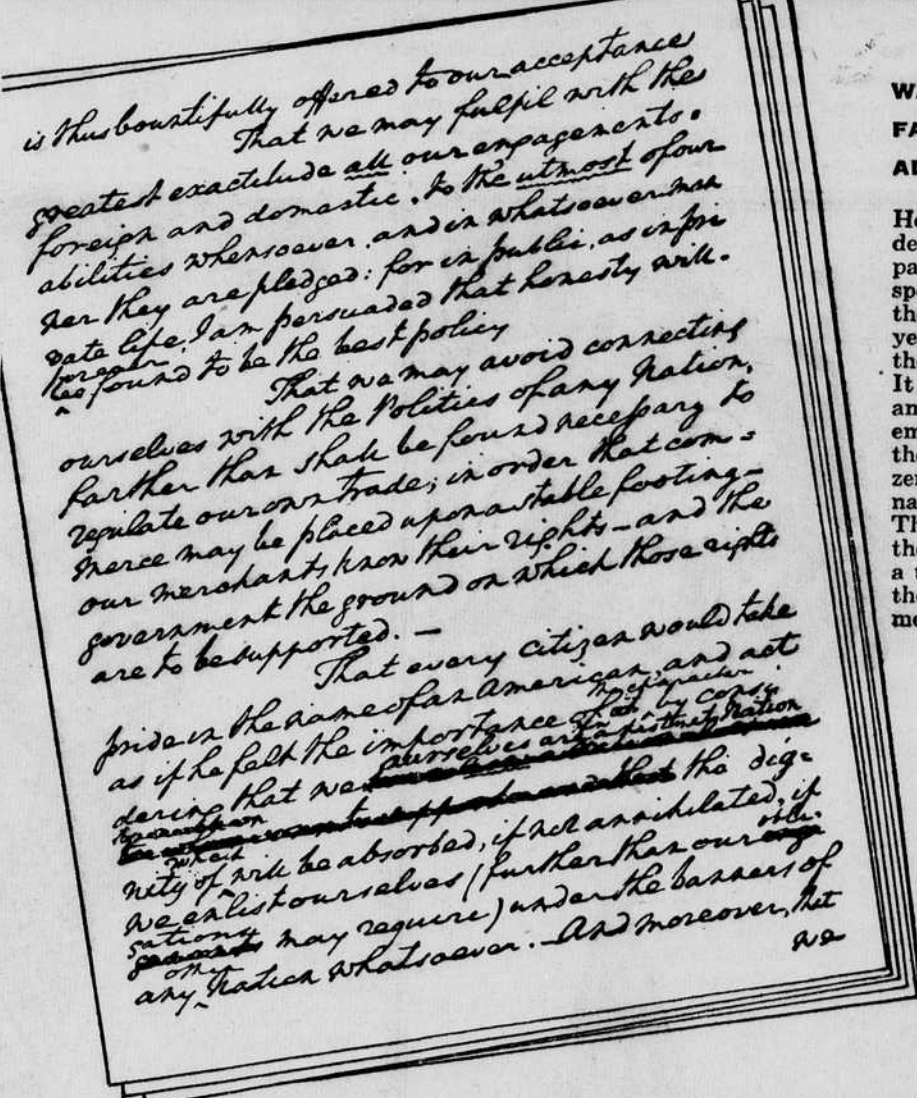 is thus bountifully offered to our acceptance
That we may fulfil with the
greatest exactitude all our engagements.
foreign and domestic, to the utmost of our
abilities whensoever, and in whatsoever man
ner they are pledged: for in public, as in pri
vate life, I am persuaded that honesty will.
forever
be found to be the best policy
^
That we may avoid connecting
ourselves with the Politics of any Nation,
farther than shall be found necessary to
regulate our own trade; in order that com=
merce may be placed upon a stable footing—
our merchants know their rights—and the
government the ground on which those rights
are to be supported. —
That every citizen would take
pride in the name of an American, and act
as if he felt the importance of
the character by consi
dering that we ourselves are a distinct Nation
the dig=
which
nity of ^ will be absorbed, if not annihilated, if
we enlist ourselves (further than our obli-
gations may require) under the banners of
any ^ Nation whatsoever. — And moreover, that
we
W
FA
AI
He
de
pa
sp
th
ye
the
It
an
em
the
zen
na
Th
the
a
the
me